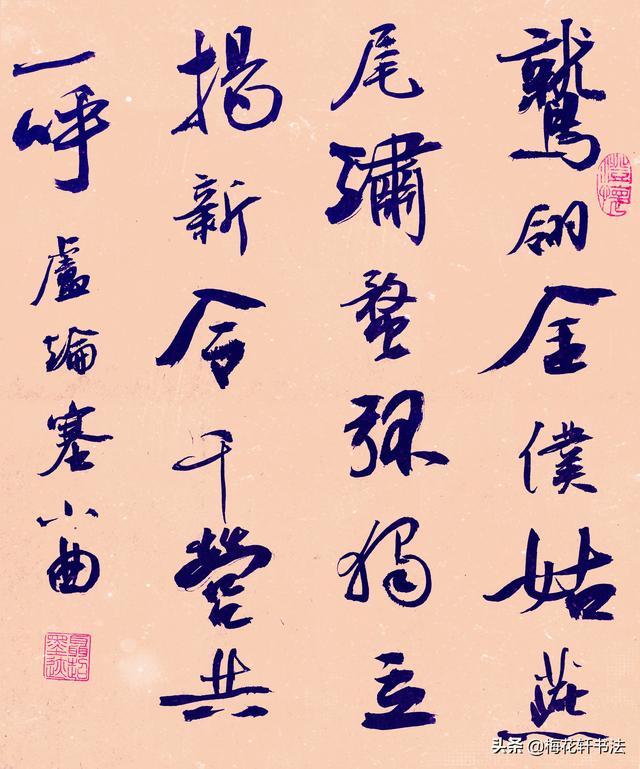 鷲翎金僕姑燕
尾繡蝥弧獨立
揚新令千營共
一呼 盧綸塞下曲
澄懷
头条 @梅花轩书法